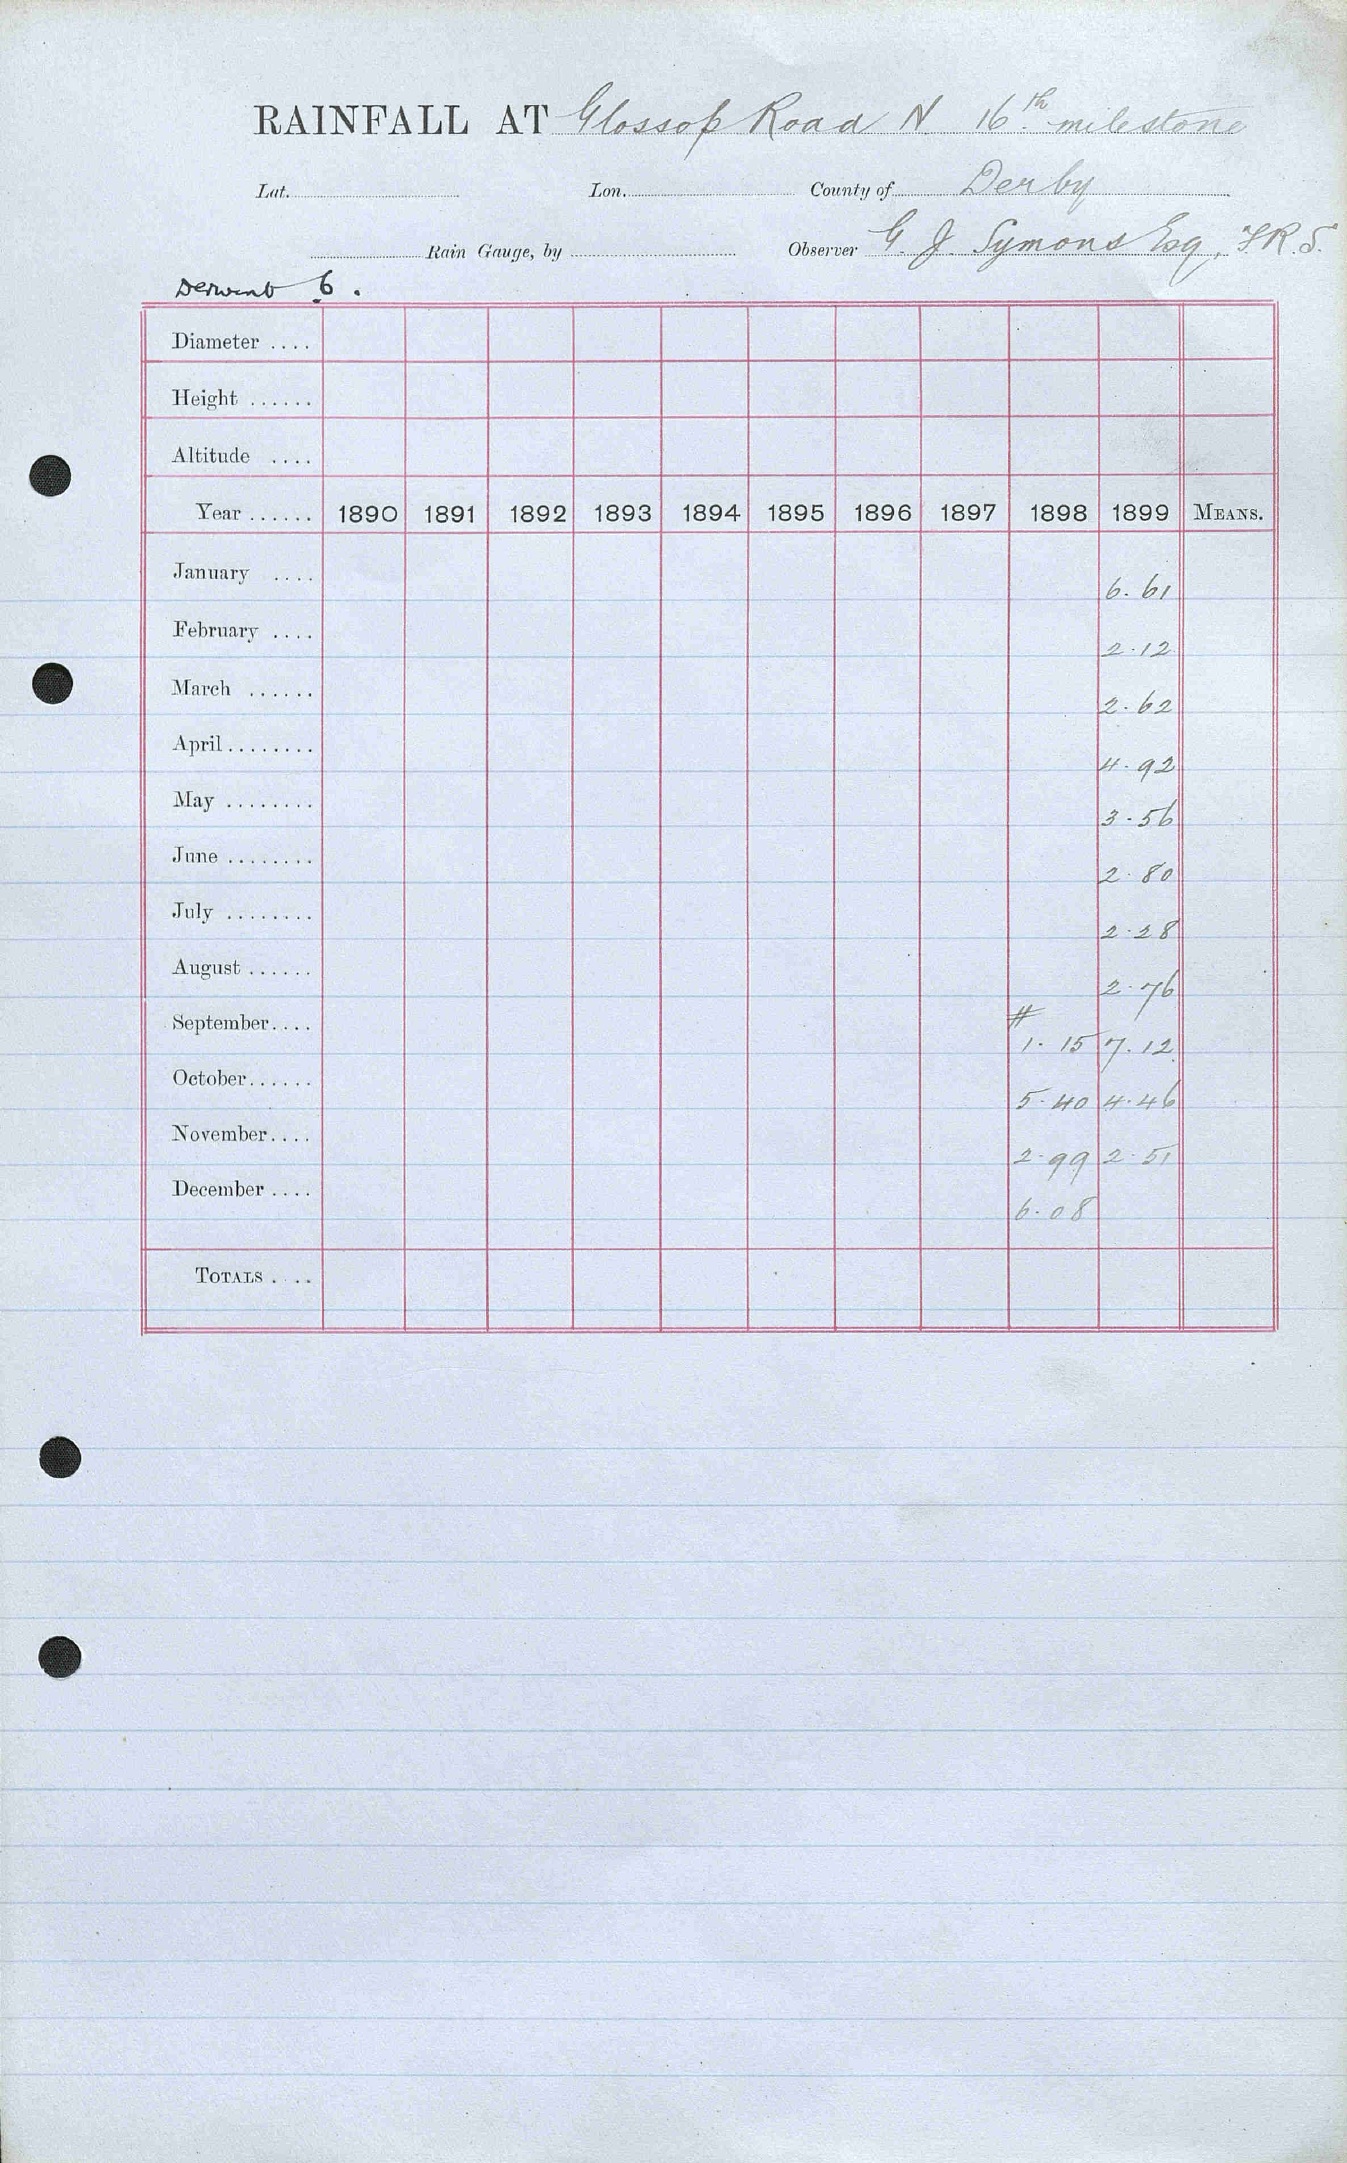 RAINFALL AT Glossop Road N. 16th milestone
Lat. Lon. County of Derby
Rain Gauge, by Observer G. J. Symons Esq, F.R.S.
Derwent 6.
Diameter ....
Height ......
Altitude ....
Year ...... 1890 1891 1892 1893 1894 1895 1896 1897 1898 1899 MEANS.
January .... 6.61
February .... 2.12
March ...... 2.62
April ........ 4.92
May ........ 3.56
June ........ 2.80
July ........ 2.28
August ...... 2.76
#
September.... 1.15 7.12
October...... 5.40 4.46
November.... 2.99 2.51
December .... 6.08
TOTALS ....